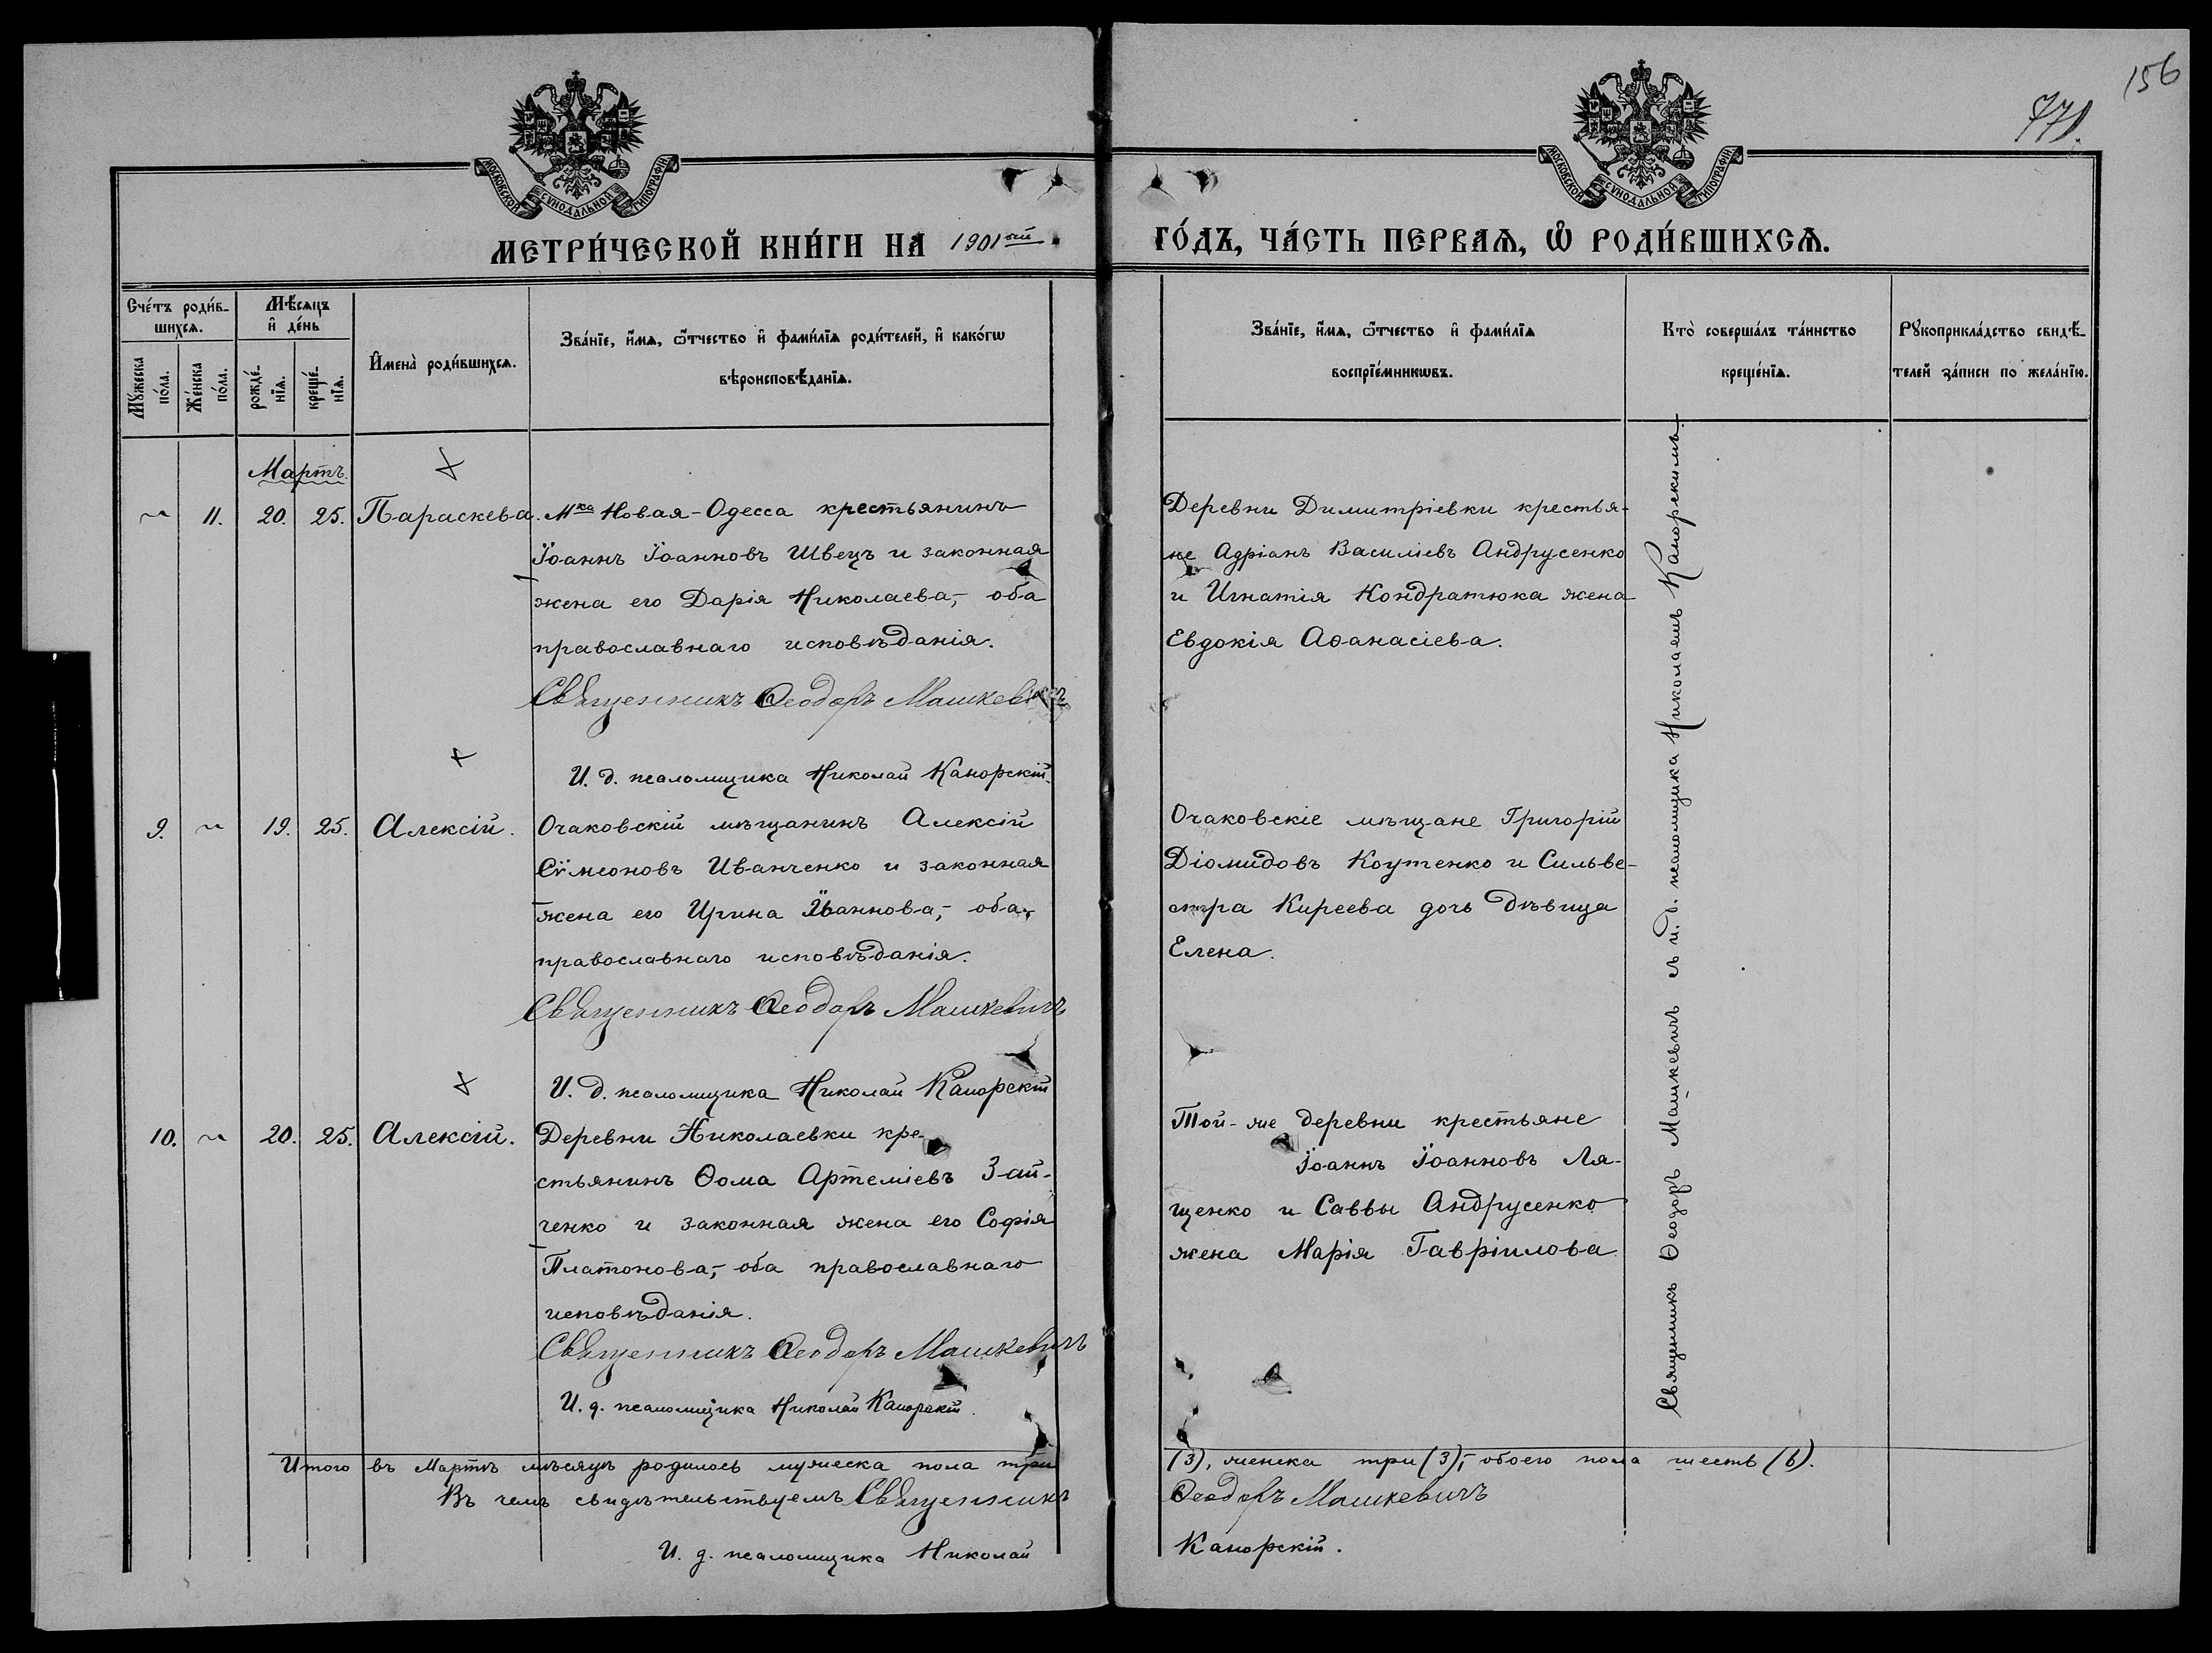 156
771.
МОСКОВСКОЙ СѴНОДАЛЬНОЙ ТИПОГРАФІИ
МОСКОВСКОЙ СѴНОДАЛЬНОЙ ТИПОГРАФІИ
МЕТРИ́ЧЕСКОЙ КНИ́ГИ НА 1901ый ГО́ДЪ, ЧА́СТЬ ПЕРВАѦ, Ѡ҆ РОДИ́ВШИХСѦ.
Счéтъ роди́в-
шихсѧ.
Мꙋ́жеска
по́ла.
Же́нска
по́ла.
Мѣ́сѧцъ
и҆ де́нь
рожде́-
нїѧ.
креще́-
нїѧ.
И҆мена̀ роди́вшихсѧ.
Зва́нїе, и҆́мѧ, ѻ҆́тчество и҆ фами́лїѧ роди́телей, и҆ како́гѡ
вѣроисповѣ́данїѧ.
Зва́нїе, и҆́мѧ, ѻ҆́тчество и҆ фами́лїѧ
воспрїе́мникѡвъ.
Кто̀ соверша́лъ та́инство
креще́нїѧ.
Рꙋкоприкла́дство свидѣ́-
телей за́писи по жела́нїю.
Мартъ.
11. 20. 25. Параскева. Мка Новая-Одесса крестьянинъ
Іоаннъ Іоанновъ Швецъ и законная
жена его Дарія Николаева,- оба
православнаго исповѣданія.
Священникъ Ѳеодоръ Машкевичъ
И. д. псаломщика Николай Канорскій.
Деревни Димитріевки крестья-
не Адріанъ Василіевъ Андрусенко
и Игнатія Кондратюка жена
Евдокія Аѳанасіева.
9. 19. 25. Алексій. Очаковскій мѣщанинъ Алексій
Сѵмеоновъ Иванченко и законная
жена его Ирина Іоаннова,- оба
православнаго исповѣданія.
Священникъ Ѳеодоръ Машкевичъ
И. д. псаломщика Николай Канорскій
Очаковскіе мѣщане Григорій
Діомидовъ Коутенко и Сильве-
стра Киреева дочь дѣвица
Елена.
10. 20. 25. Алексій. Деревни Николаевки кре-
стьянинъ Ѳома Артеміевъ Зай-
ченко и законная жена его Софія
Платонова,- оба православнаго
исповѣданія.
Священникъ Ѳеодоръ Машкевичъ
И. д. псаломщика Николай Канорскій.
Той-же деревни крестьяне
Іоаннъ Іоанновъ Ля-
щенко и Саввы Андрусенко
жена Марія Гавріилова.
Священникъ Ѳеодоръ Машкевичъ съ и. д. псаломщика Николаемъ Канорскимъ.
Итого въ Мартѣ мѣсяцѣ родилось мужеска пола три (3), женска три (3),- обоего пола шесть (6).
Въ чемъ свидѣтельствуемъ Священникъ Ѳеодоръ Машкевичъ
И. д. псаломщика Николай Канорскій.